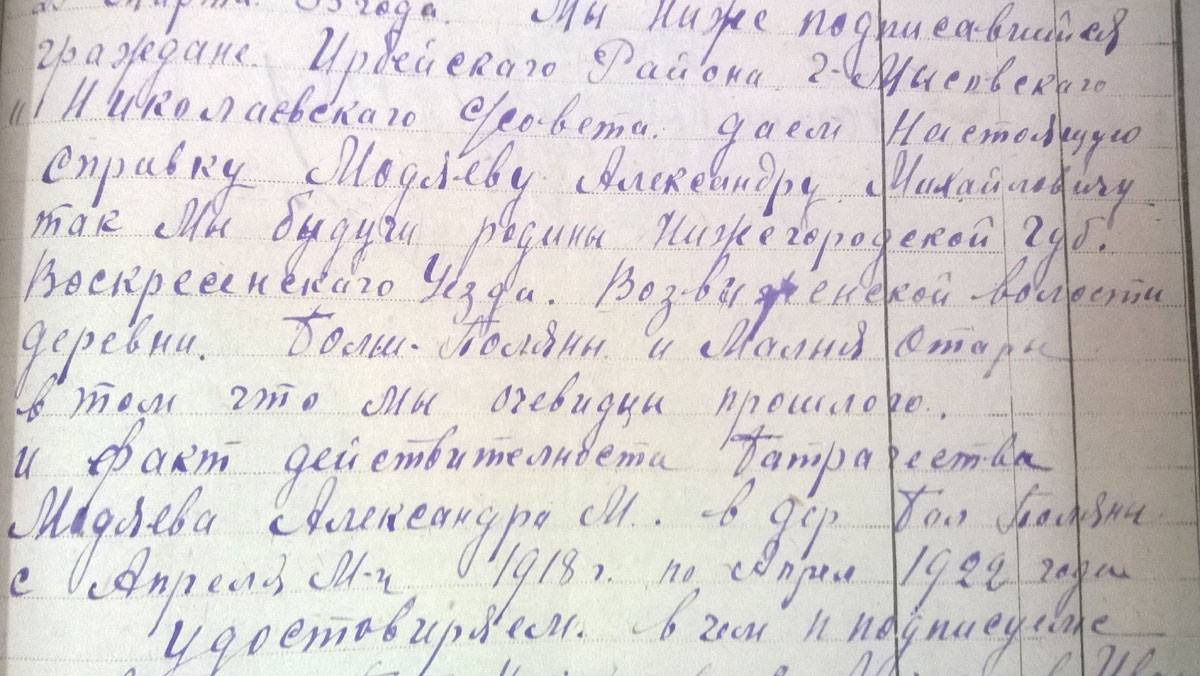 Марта 33 года. Мы Ниже подписавшийся
граждане. Ирбейскаго Района 2-Мысовскаго
и Николаевскаго С/совета. даем Настоящую
справку Модяеву Александру Михайловичу
так Мы будучи родины Нижегородской Губ.
Воскресенскаго Уезда. Воздвиженской волости
деревни. Больш-Поляны и Малыя Отары
в том что мы очевидцы прошлого.
и факт действительности батрачества
Модяева Александра М. в дер Бол Поляны
с Апреля М-ц 1918 г. по Апрел 1922 года
удостовиряем. в чем и подписуемс